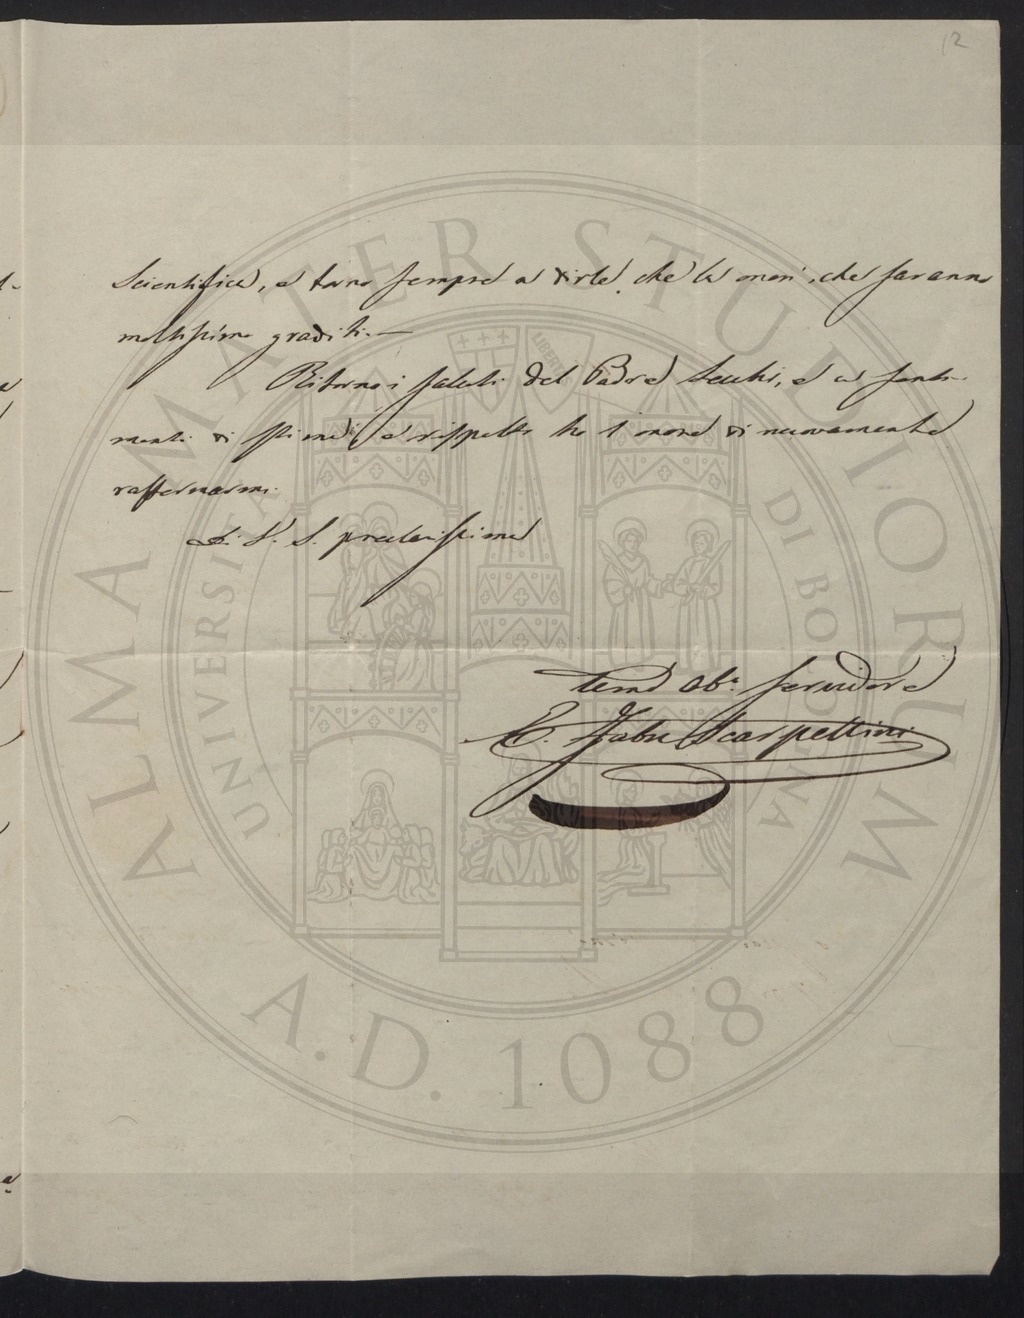 12
Scientifica, e torno sempre a dirle, che la onori, che saranno
moltissimo graditi.—
Ritorno i saluti del Padre Secchi, e a senti-
menti di stima, e rispetto ho l'onore di nuovamente
raffermarmi
Di V. S. preclarissima
obᵃ. servidora
E. Fabri Scarpellini
ALMA MATER STUDIORUM
UNIVERSITÀ DI BOLOGNA
LIBERTAS
A.D. 1088